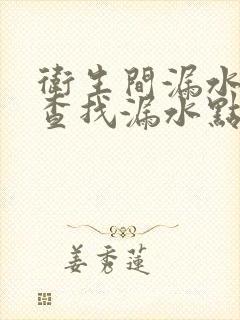 衛生間漏水
查找漏水點
姜秀蓮